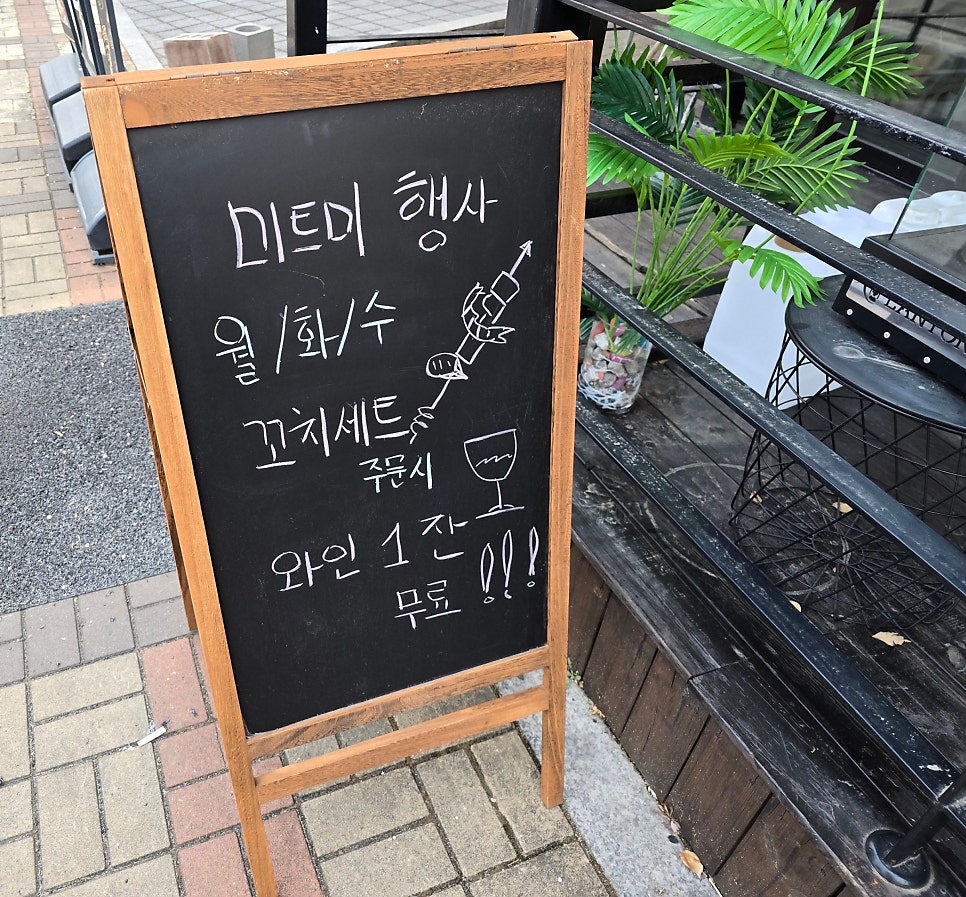 미트미 행사
월/화/수
꼬치세트
주문시
와인 1잔
무료 !!!